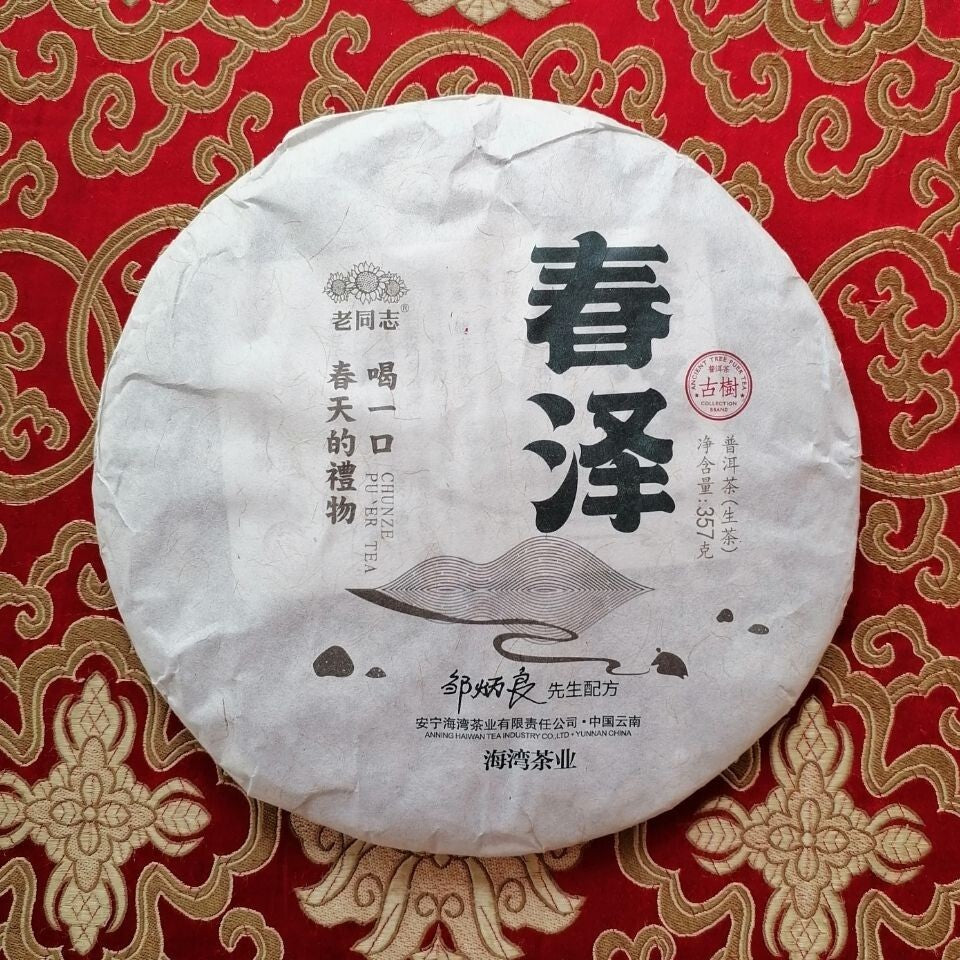 老同志®
喝一口
春天的禮物
CHUNZE
PU`ER TEA
春泽
ANCIENT TREE PUER TEA
普洱茶
古樹
COLLECTION
BRAND
普洱茶(生茶)
净含量:357克
邹炳良 先生配方
安宁海湾茶业有限责任公司·中国云南
ANNING HAIWAN TEA INDUSTRY CO.,LTD·YUNNAN CHINA
海湾茶业